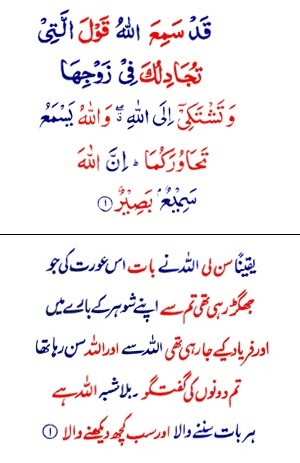 قَدْ سَمِعَ اللّٰهُ قَوْلَ الَّتِیْ
تُجَادِلُكَ فِیْ زَوْجِهَا
وَ تَشْتَكِیْۤ اِلَی اللّٰهِ ۖۗ وَ اللّٰهُ یَسْمَعُ
تَحَاوُرَكُمَا ؕ اِنَّ اللّٰهَ
سَمِیْعٌۢ بَصِیْرٌ ۝۱
یقیناً سن لی اللہ نے بات اس عورت کی جو
جھگڑ رہی تھی تم سے اپنے شوہر کے بارے میں
اور فریاد کیے جا رہی تھی اللہ سے اور اللہ سن رہا تھا
تم دونوں کی گفتگو ۔ بلا شبہ اللہ ہے
ہر بات سننے والا اور سب کچھ دیکھنے والا ۝۱